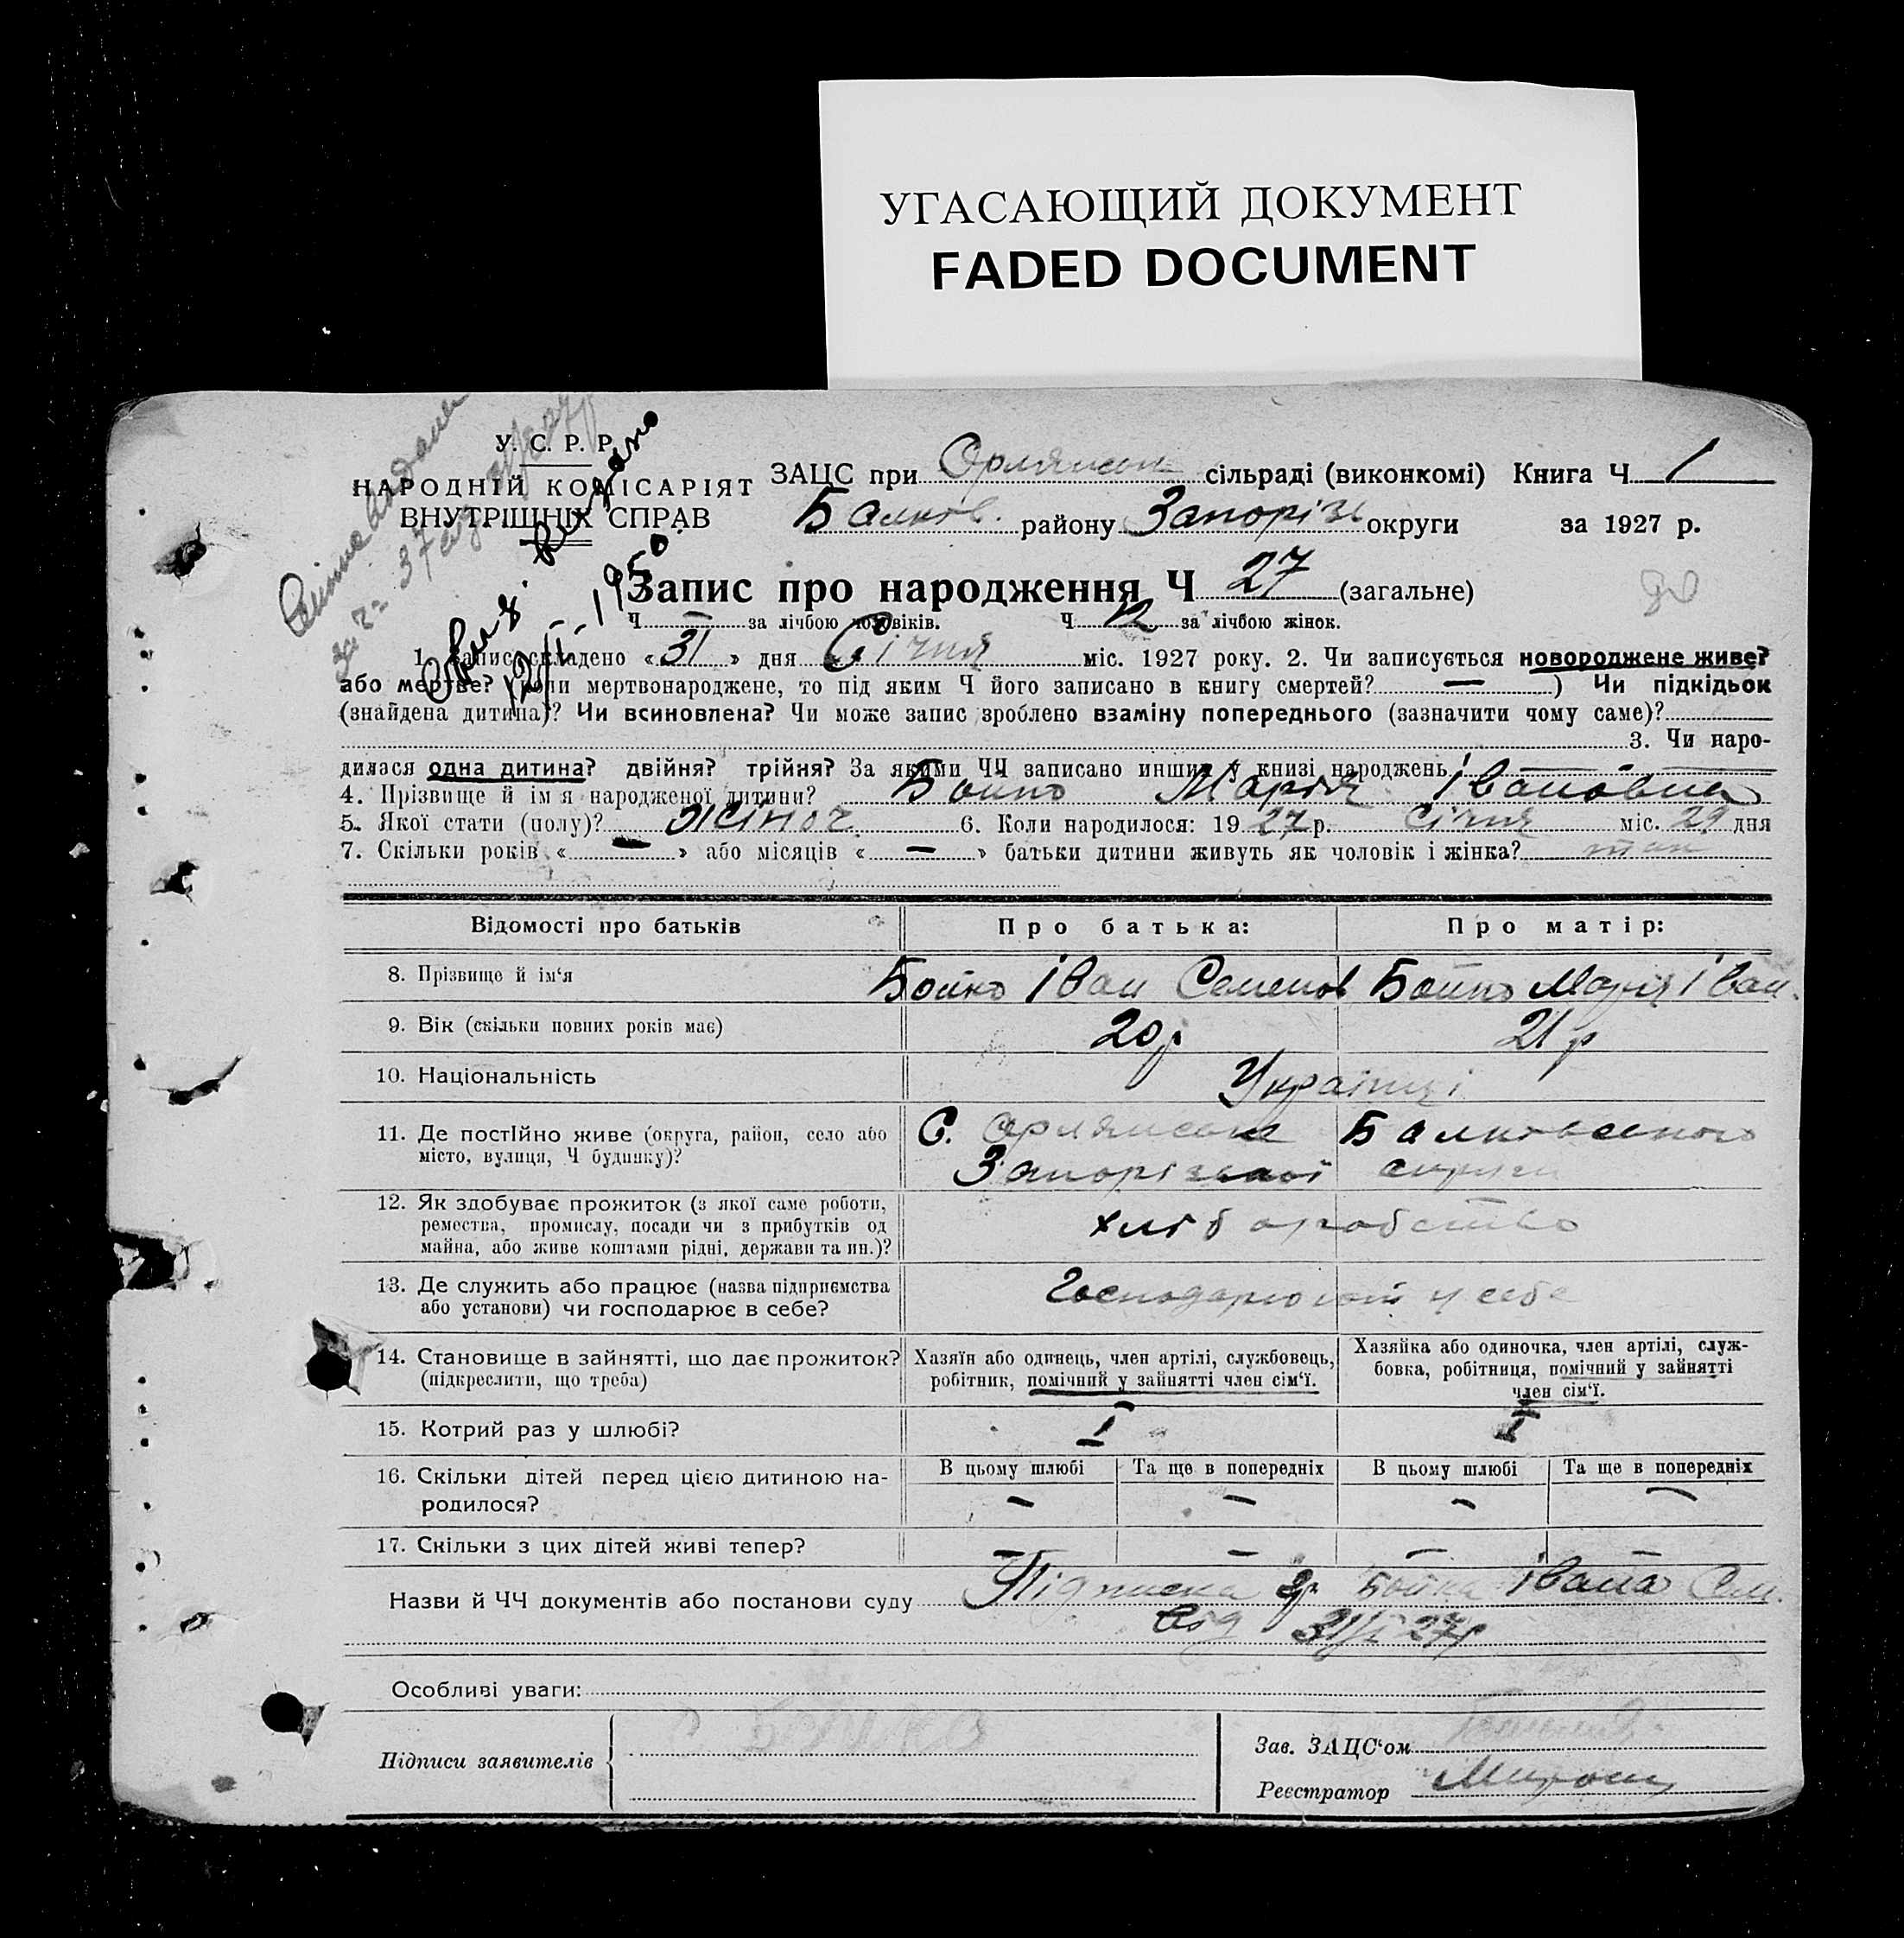 УГАСАЮЩИЙ ДОКУМЕНТ
FADED DOCUMENT
У. С. Р. Р.
НАРОДНІЙ КОМІСАРІЯТ
ВНУТРІШНІХ СПРАВ
ЗАЦС при Орлянськ сільраді (виконкомі) Книга Ч 1
Балков. району Запорізь округи за 1927 р.
Запис про народження Ч 27 (загальне)
Ч — за лічбою чоловіків. Ч 12 за лічбою жінок.
1. Запис складено « 31 » дня Січня міс. 1927 року. 2. Чи записується новороджене живе?
або мертве? (коли мертвонароджене, то під яким Ч його записано в книгу смертей? — ) Чи підкідьок
(знайдена дитина)? Чи всиновлена? Чи може запис зроблено взаміну попереднього (зазначити чому саме)?
3. Чи наро-
дилася одна дитина? двійня? трійня? За якими ЧЧ записано инших у книзі народжень! —
4. Прізвище й ім'я народженої дитини? Бойко Марія Івановна
5. Якої стати (полу)? жіноч. 6. Коли народилося: 1927 р. Січня міс. 29 дня
7. Скільки років « — » або місяців « — » батьки дитини живуть як чоловік і жінка? так
Відомості про батьків Про батька: Про матір:
8. Прізвище й ім'я Бойко Іван Семенов Бойко Марія Іван.
9. Вік (скільки повних років має) 20 р 21 р
10. Національність Українці
11. Де постійно живе (округа, район, село або С. Орлянське Балковського
місто, вулиця, Ч будинку)? Запорізької округи
12. Як здобуває прожиток (з якої саме роботи,
ремества, промислу, посади чи з прибутків од хліборобство
майна, або живе коштами рідні, держави та ин.)?
13. Де служить або працює (назва підприємства Господарюють у себе
або установи) чи господарює в себе?
14. Становище в зайнятті, що дає прожиток? Хазяїн або одинець, член артілі, службовець, Хазяйка або одиночка, член артілі, служ-
(підкреслити, що треба) робітник, помічний у зайнятті член сім'ї. бовка, робітниця, помічний у зайнятті
член сім'ї.
15. Котрий раз у шлюбі? I I
16. Скільки дітей перед цією дитиною на- В цьому шлюбі Та ще в попередніх В цьому шлюбі Та ще в попередніх
родилося? — — — —
17. Скільки з цих дітей живі тепер? — — — —
Назви й ЧЧ документів або постанови суду Підписка гр Бойка Івана Сем.
від 31/I 27р
Особливі уваги:
Підписи заявителів Бойко
Зав. ЗАЦС'ом
Реєстратор